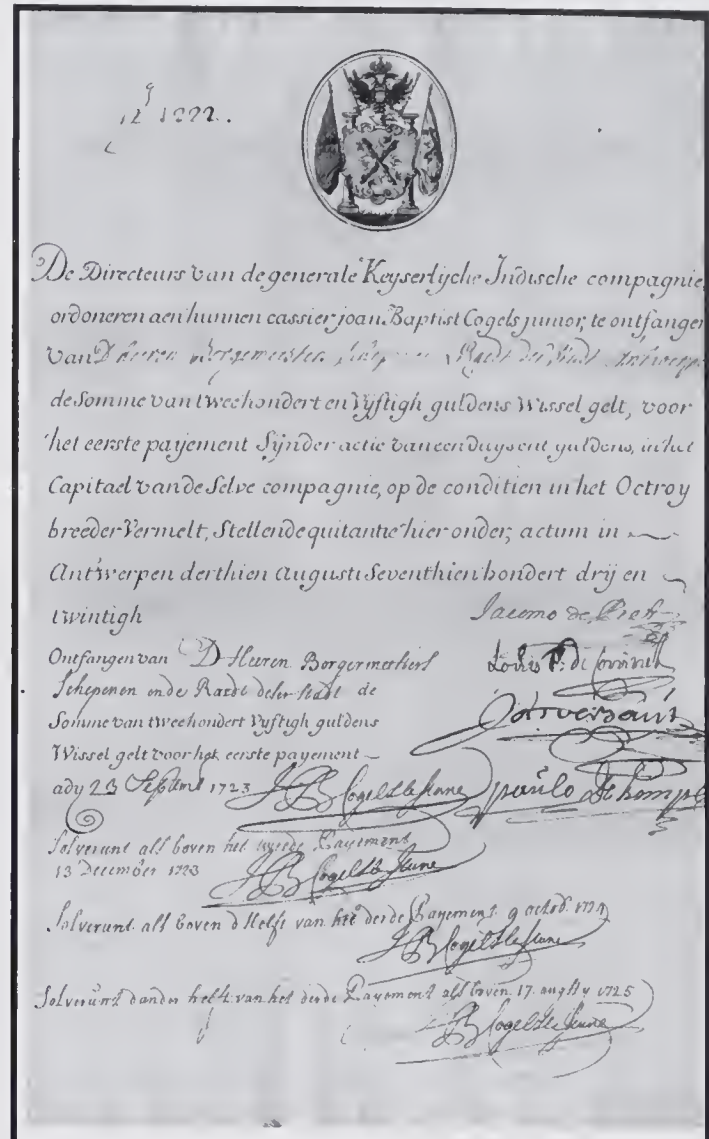 De Directeurs van de generale Keyserlyche Indische compagnie,
ordoneren aen hunnen cassier joan Baptist Cogels junior, te ontfangen
van D heeren Borgemeesteren Raedt der Stadt Antwerpe
de Somme van tweehondert en Vyftigh guldens Wissel gelt, voor
het eerste payement Sijnder actie van een duysent guldens, in het
Capitael van de Selve compagnie, op de conditien in het Octroy
breeder Vermelt, Stellende quitantie hier onder, actum in
Antwerpen derthien Augusti Seventhien hondert drij en
twintigh
Jacomo de Pret
Ontfangen van D Heeren Borgermeesters
Schepenen ende Raedt deser stadt de
Somme van tweehondert Vyftigh guldens
Wissel gelt voor het eerste payement
ady 23 1723 JB Cogels le Jeune
paulo De
Solverunt als boven het tweede Payement
13 December 1723 JB Cogels le Jeune
Solverunt als boven d'Helft van het derde Payement 9 octob. 1724
JB Cogels le Jeune
Solverunt d'ander helft van het derde Payement als boven 17 1725
JB Cogels le Jeune